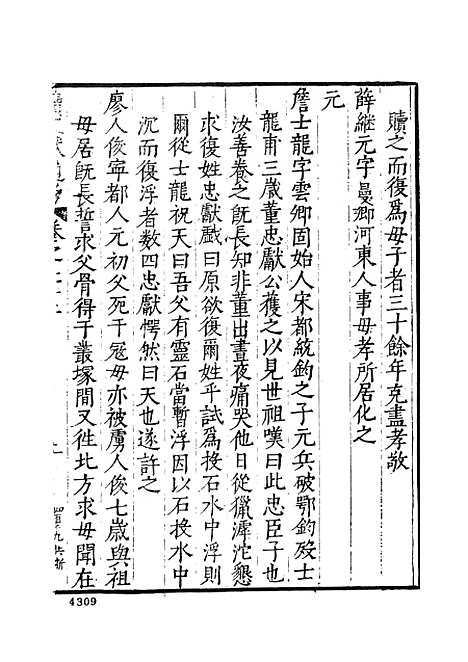 贖之而復爲母子者三十餘年克盡孝敬
薛繼元字曼卿河東人事母孝所居化之
元
詹士龍字雲卿固始人宋都統鈞之子元兵破鄂鈞歿士
龍甫三歲董忠獻公獲之以見世祖嘆曰此忠臣子也
汝善養之旣長知非董出晝夜痛哭他日從獵滹沱懇
求復姓忠獻戯曰原欲復爾姓乎試為投石水中浮則
爾從士龍祝天曰吾父有靈石當暫浮因以石投水中
沉而復浮者数四忠獻愕然曰天也遂許之
廖人俊寧都人元初父死于冦母亦被虜人俊七歲與祖
母居旣長誓求父骨得于叢塚間又徃北方求母聞在
卷之二十二
4309